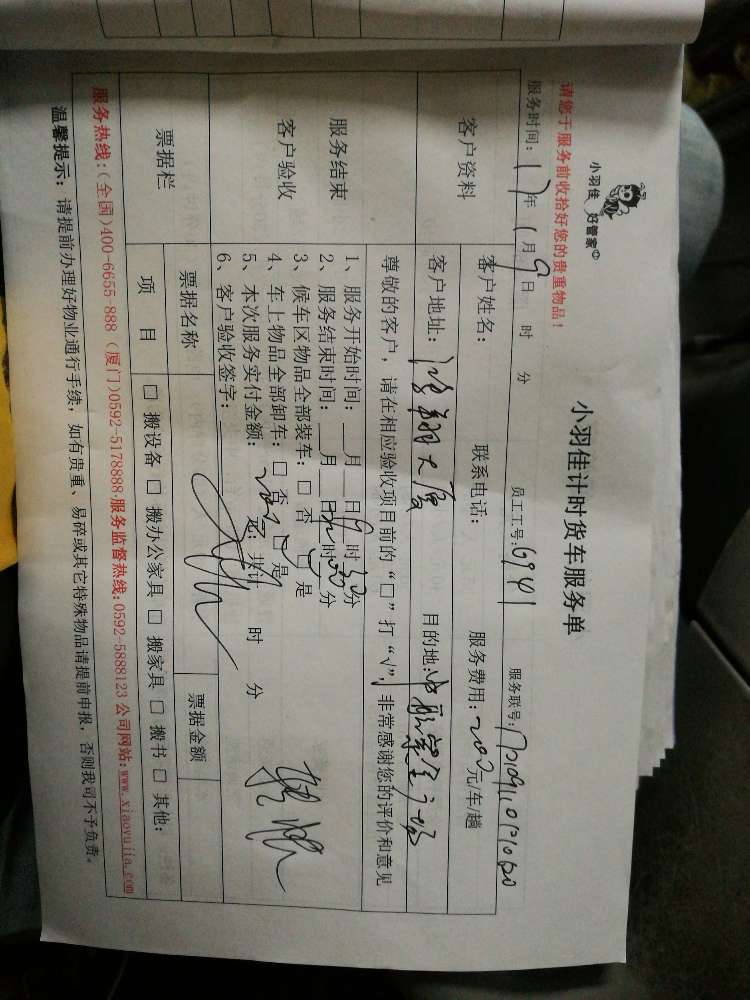 小羽佳 好管家©
请您于服务前收拾好您的贵重物品！
小羽佳计时货车服务单
服务时间：17年 1月 9日 时 分 员工工号：6941 服务联号：
客户资料
客户姓名： 联系电话： 服务费用：200元/车/趟
客户地址： 翔大厦 目的地：
尊敬的客户，请在相应验收项目前的“□”打“√”，非常感谢您的评价和意见
服务结束
客户验收
1、服务开始时间：__月__日9时30分
2、服务结束时间：__月__日 时 分
3、候车区物品全部装车：□ 否 □ 是
4、车上物品全部卸车：□ 否 □ 是
5、本次服务实付金额： 元；共计 时 分
6、客户验收签字：
票据栏
票据名称 票据金额
项 目
□ 搬设备 □ 搬办公家具 □ 搬家具 □ 搬书 □ 其他：
服务热线:(全国)400-6655 888 (厦门)0592-5178888·服务监督热线:0592-5888123 公司网站:www.xiaoyujia.com
温馨提示：请提前办理好物业通行手续，如有贵重、易碎或其它特殊物品请提前申报，否则我司不予负责。